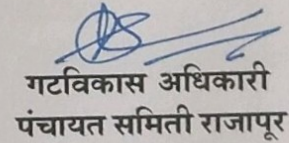 गटविकास अधिकारी
पंचायत समिती राजापूर